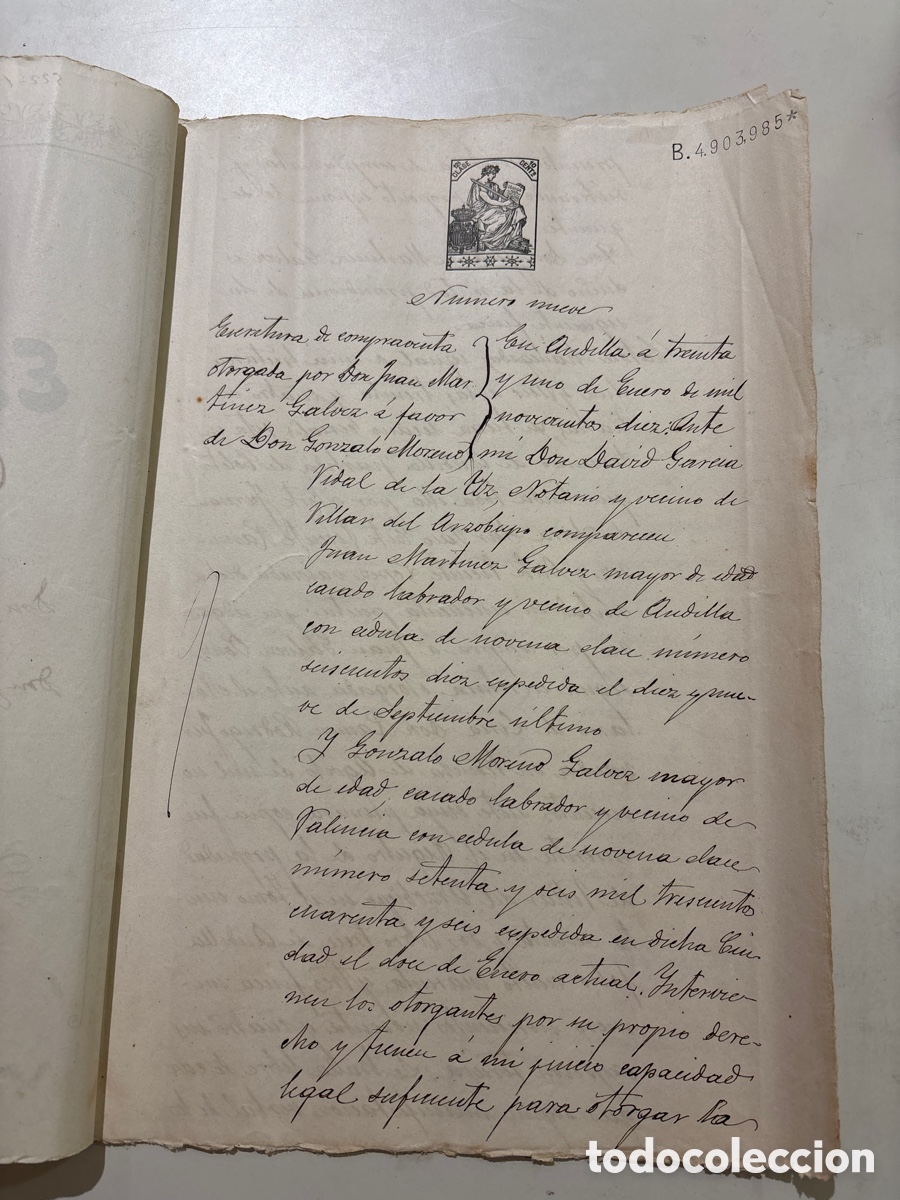 B. 4.903,985*
CLASE 10 CENTS
Número nueve
Escritura de compraventa
otorgada por Don Juan Mar-
tinez Galvez á favor
de Don Gonzalo Moreno
En Andilla á treinta
y uno de Enero de mil
novecientos diez: Ante
mi Don David Garcia
Vidal de la Uz, Notario y vecino de
Villar del Arzobispo comparecen
Juan Martinez Galvez mayor de edad
casado labrador y vecino de Andilla
con cédula de novena clase número
seiscientos diez expedida el diez y nue-
ve de Septiembre último
Y Gonzalo Moreno Galvez mayor
de edad, casado labrador y vecino de
Valencia con cedula de novena clase
número setenta y seis mil trescientos
cuarenta y seis expedida en dicha Ciu-
dad el doce de Enero actual. Intervie-
nen los otorgantes por su propio dere-
cho y tienen á mi juicio capacidad
legal suficiente para otorgar la
todocoleccion